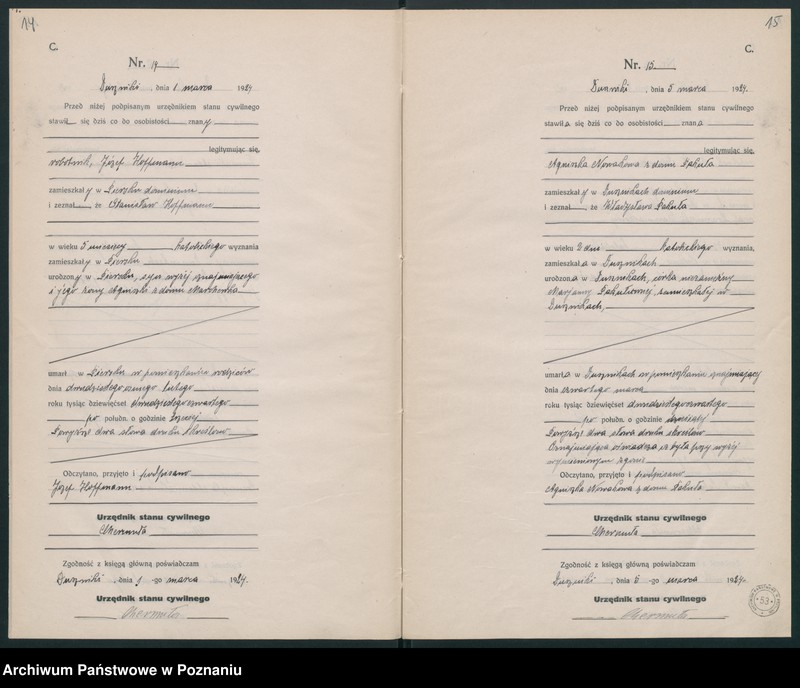 14.
C.
Nr. 14
Duszniki, dnia 1 marca 1924
Przed niżej podpisanym urzędnikiem stanu cywilnego
stawił się dziś co do osobistości znany
legitymując się,
robotnik, Józef Hoffmann
zamieszkały w domenium
i zeznał, że Stanisław Hoffmann
w wieku 5 miesięcy katolickiego wyznania
zamieszkały w
urodzony w syn wyżej znajmującego
i jego żony Agnieszki z domu
umarł w w pomieszkaniu rodziców
dnia dwudziestego ósmego lutego
roku tysiąc dziewięćset dwudziestego czwartego
po połudn. o godzinie
Powyższe dwa słowa druku skreślono
Odczytano, przyjęto i podpisano
Józef Hoffmann
Urzędnik stanu cywilnego
Zgodność z księgą główną poświadczam
Duszniki, dnia 1 -go marca 1924.
Urzędnik stanu cywilnego
15
C.
Nr. 15
Duszniki, dnia 5 marca 1924.
Przed niżej podpisanym urzędnikiem stanu cywilnego
stawiła się dziś co do osobistości znana
legitymując się,
Agnieszka Nowakowa z domu Pakuła
zamieszkały w Dusznikach domenium
i zeznał, że Władysława Pakuła
w wieku 2 dni katolickiego wyznania,
zamieszkała w Dusznikach
urodzona w Dusznikach, córka niezamężnej
Marjanny Pakułównej, zamieszkałej w
Dusznikach,
umarła w Dusznikach w pomieszkaniu znajmującej
dnia czwartego marca
roku tysiąc dziewięćset dwudziestego czwartego
po połudn. o godzinie
Powyższe dwa słowa druku skreślono
Oznajmująca oświadcza iż była przy wyżej
wymienionym zgonie
Odczytano, przyjęto i podpisano
Agnieszka Nowakowa z domu Pakuła
Urzędnik stanu cywilnego
Zgodność z księgą główną poświadczam
Duszniki, dnia 5 -go marca 1924.
Urzędnik stanu cywilnego
53
Archiwum Państwowe w Poznaniu